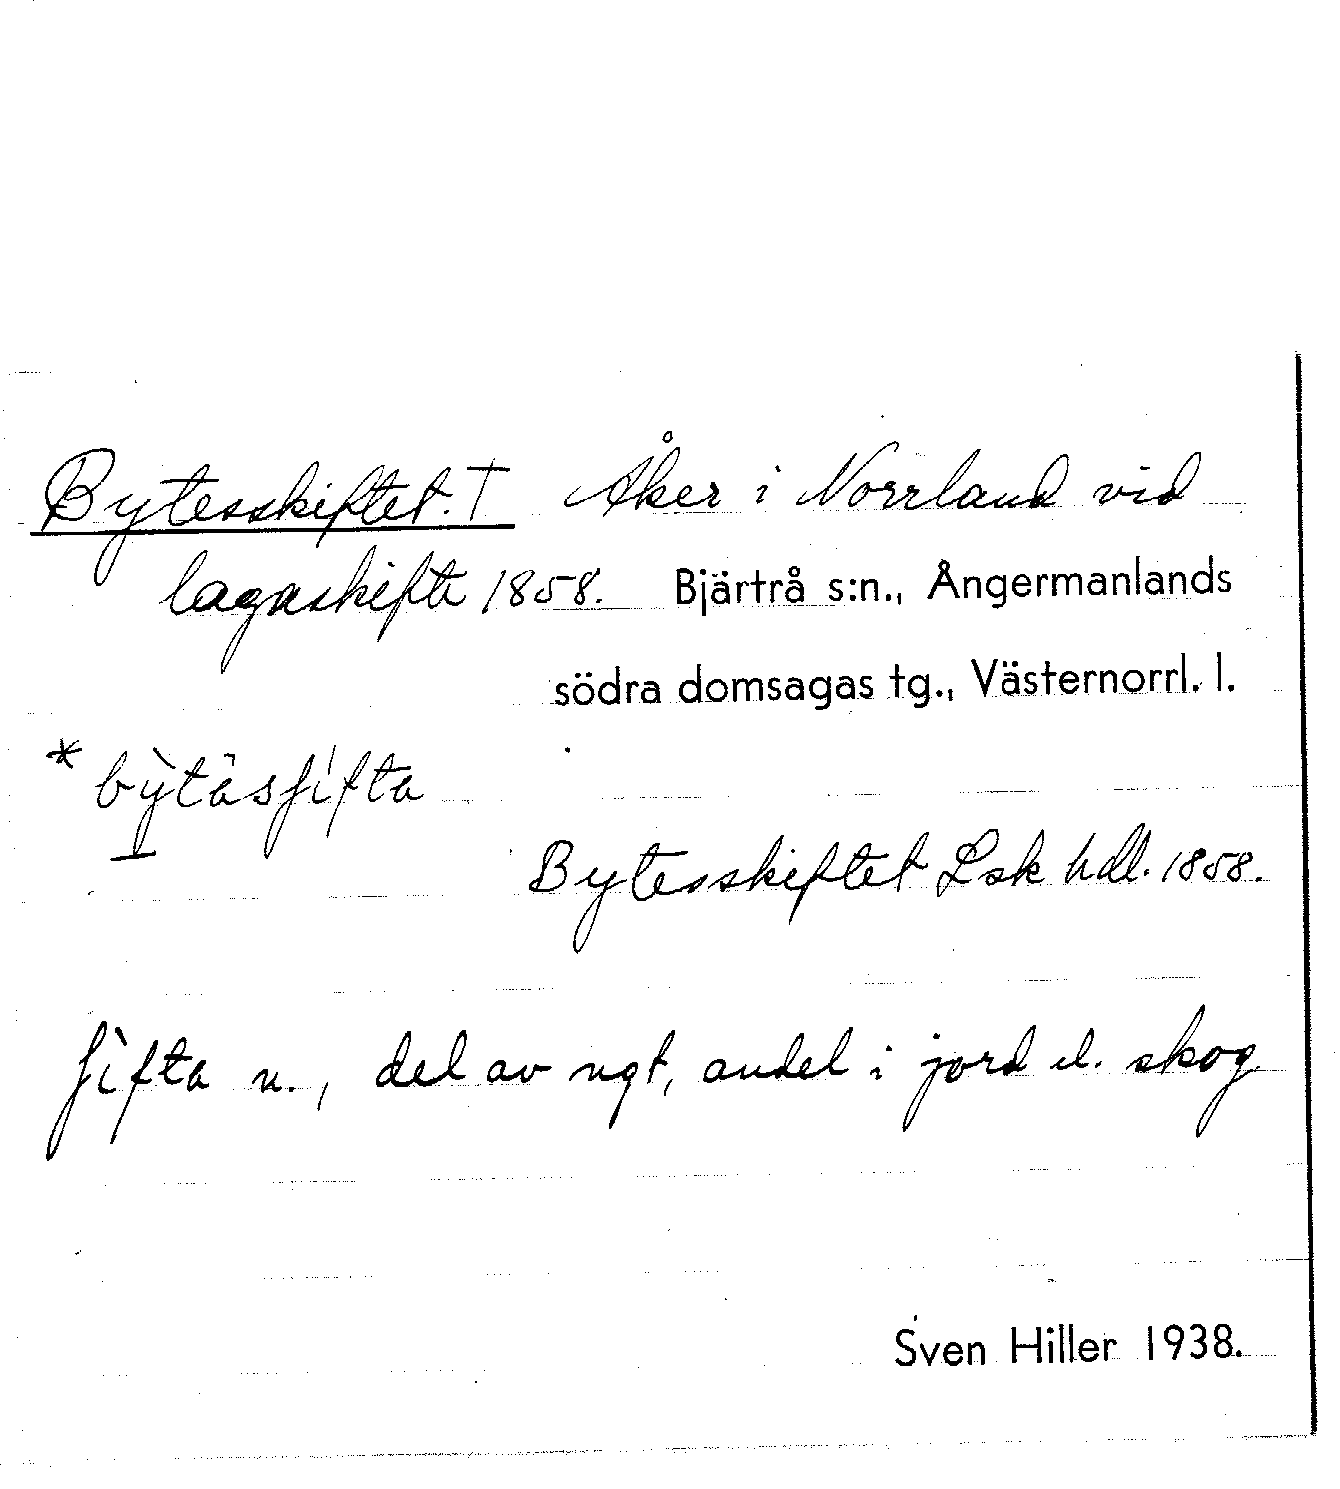 Bytesskiftet. † Åker i Norrland vid
lagaskifte 1858. Bjärtrå s:n., Ångermanlands
södra domsagas tg., Västernorrl. l.
* bỳtäsʃifta
Bytesskiftet Lsk hdl. 1858.
ʃìfta n., del av ngt, andel i jord el. skog
Sven Hiller 1938.